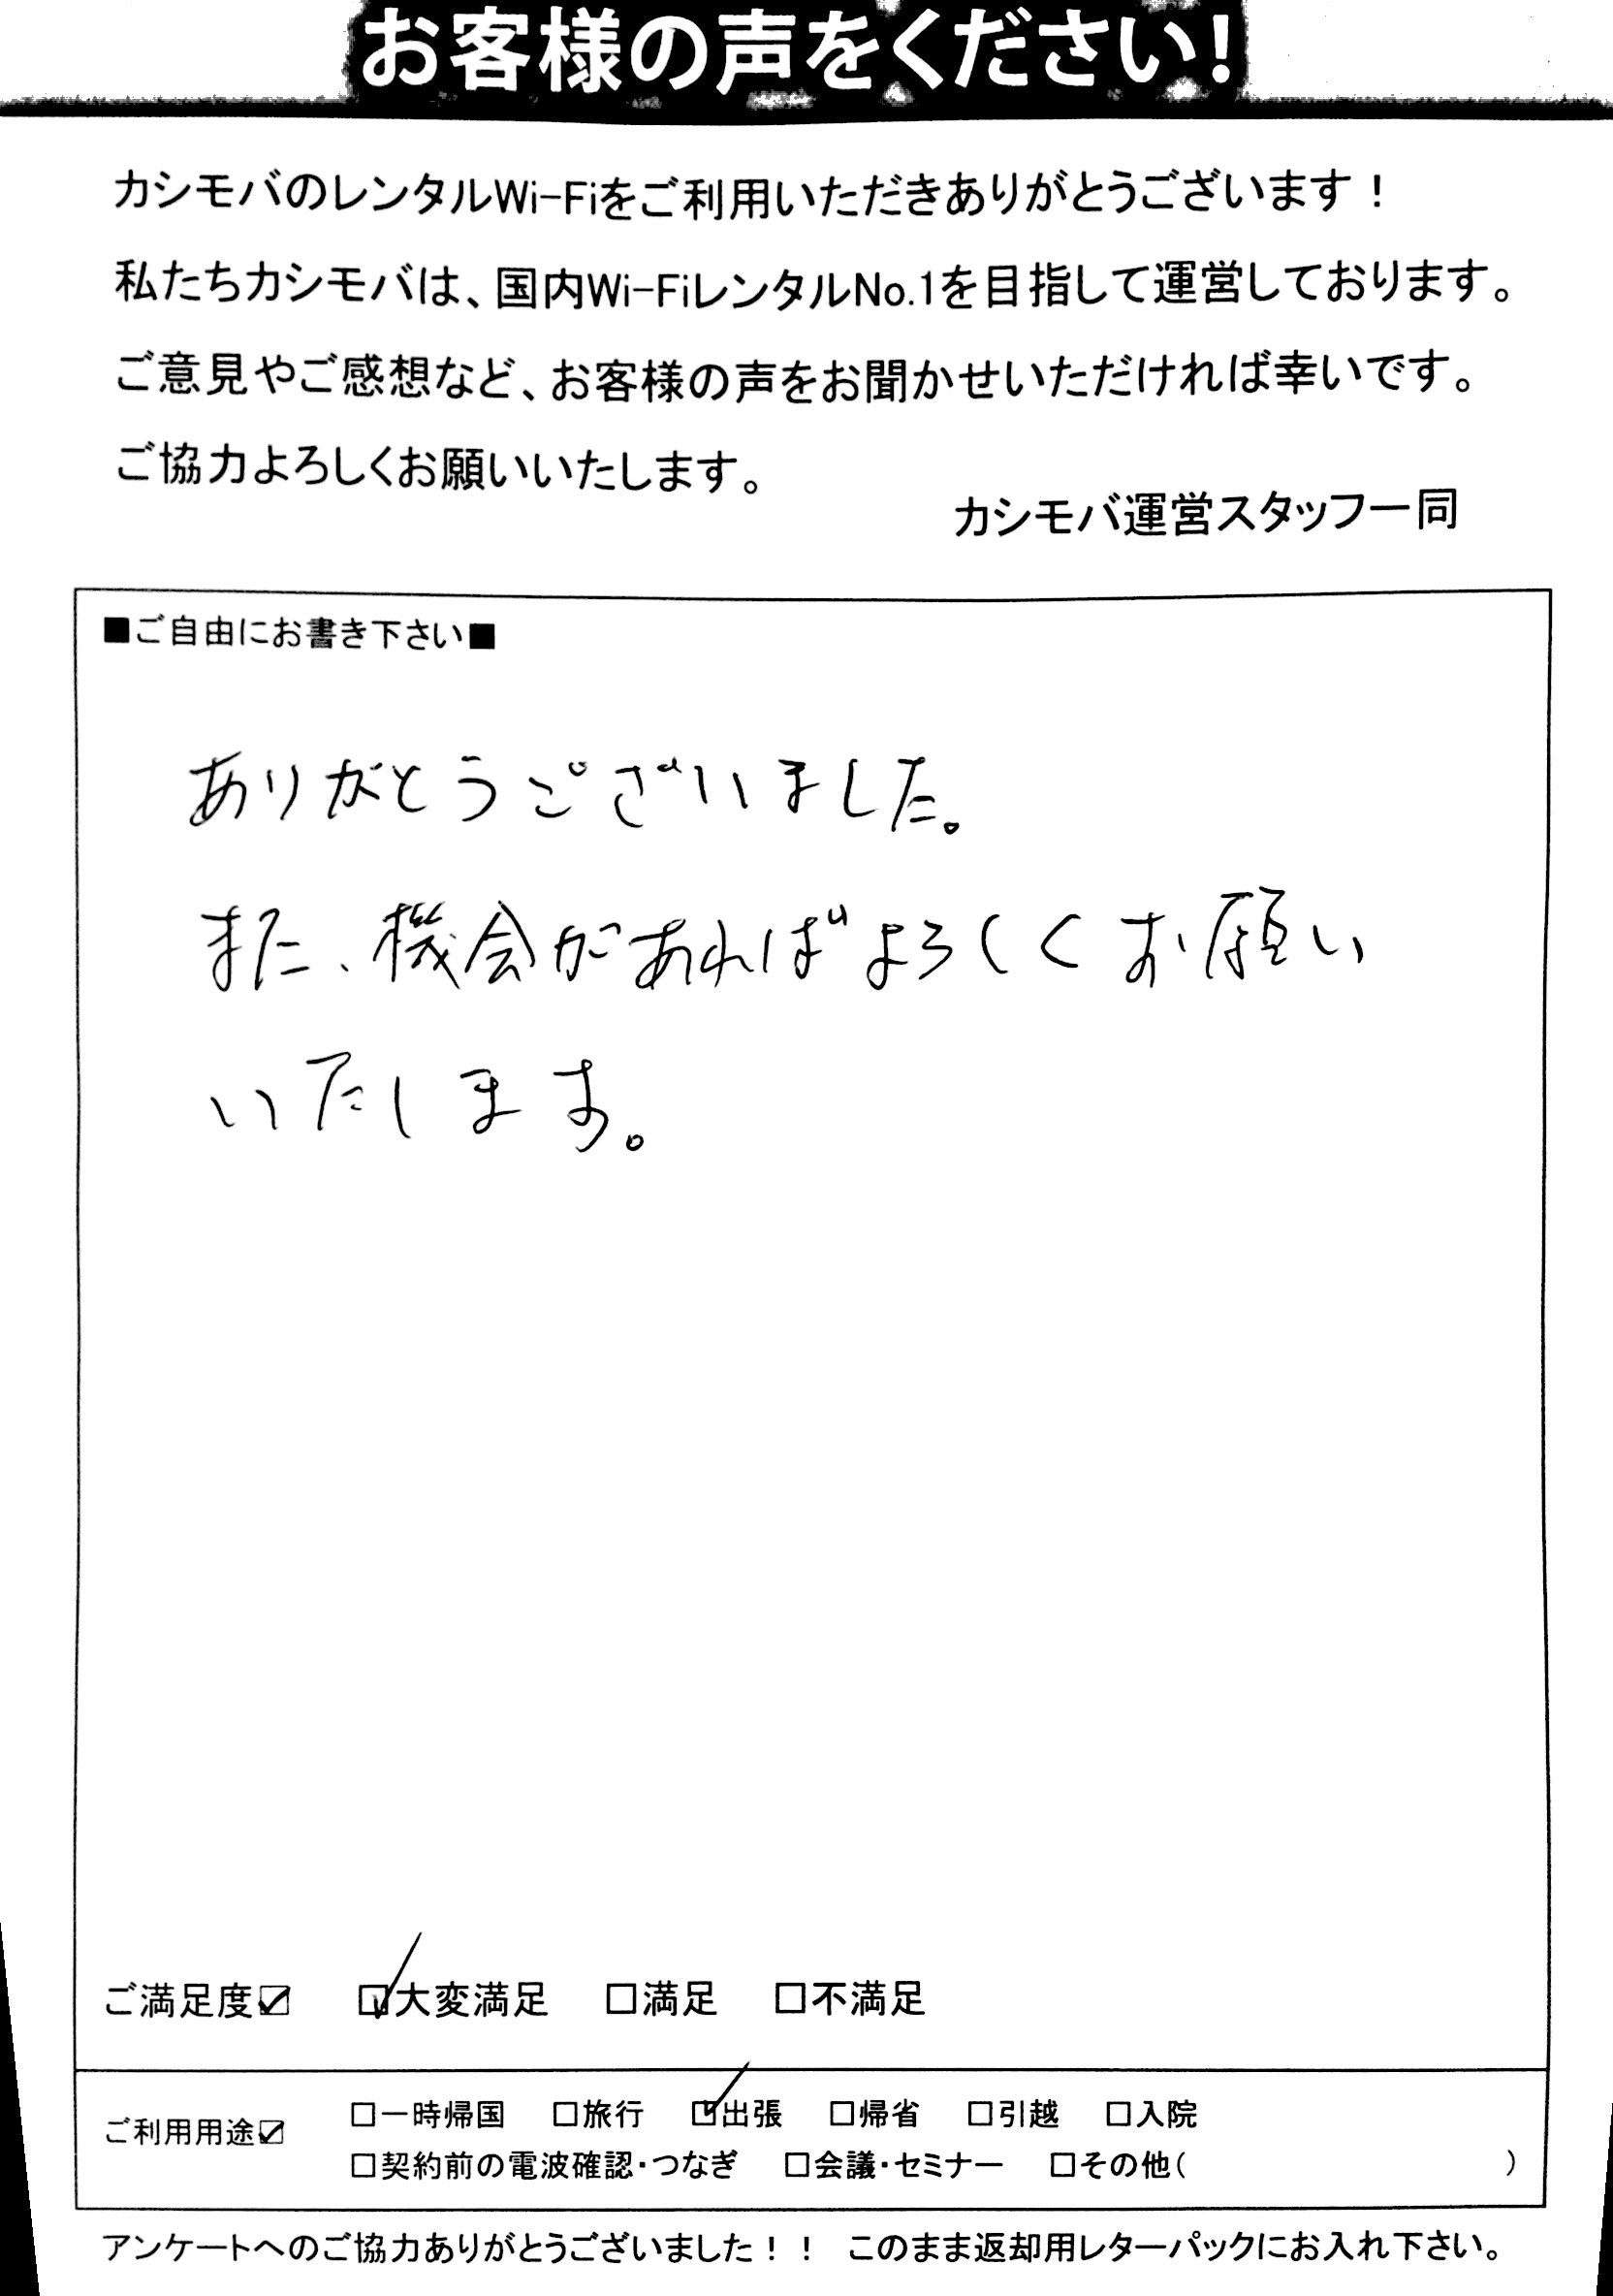 お客様の声をください!
カシモバのレンタルWi-Fiをご利用いただきありがとうございます!
私たちカシモバは、国内Wi-FiレンタルNo.1を目指して運営しております。
ご意見やご感想など、お客様の声をお聞かせいただければ幸いです。
ご協力よろしくお願いいたします。
カシモバ運営スタッフ一同
■ご自由にお書き下さい■
ありがとうございました。
また、機会があればよろしくお願い
いたします。
ご満足度☑ ☑大変満足 □満足 □不満足
ご利用用途☑ □一時帰国 □旅行 ☑出張 □帰省 □引越 □入院
□契約前の電波確認・つなぎ □会議・セミナー □その他( )
アンケートへのご協力ありがとうございました!! このまま返却用レターパックにお入れ下さい。